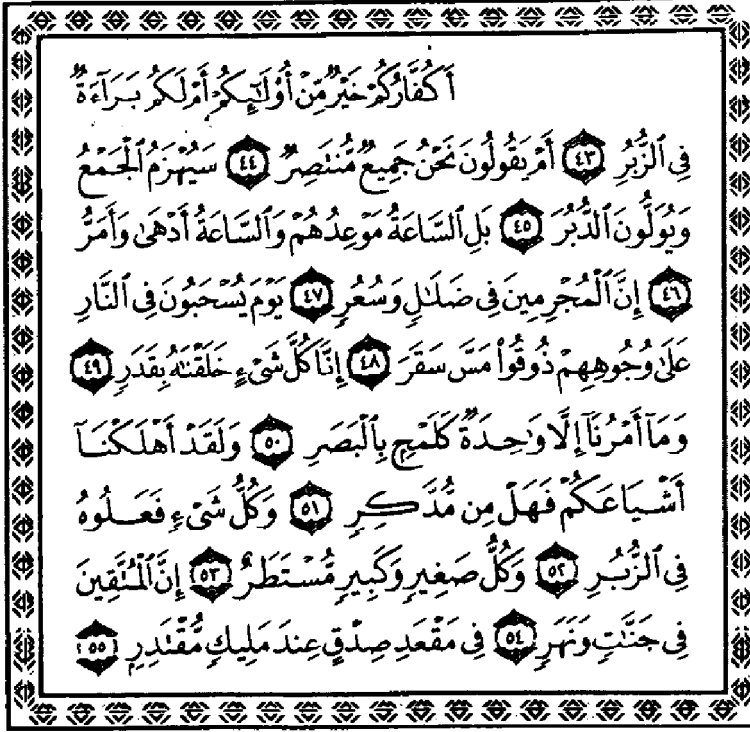 أَكُفَّارُكُمْ خَيْرٌ مِّنْ أُوْلَٰٓئِكُمْ أَمْ لَكُم بَرَآءَةٌ
فِى ٱلزُّبُرِ ٤٣ أَمْ يَقُولُونَ نَحْنُ جَمِيعٌ مُّنتَصِرٌ ٤٤ سَيُهْزَمُ ٱلْجَمْعُ
وَيُوَلُّونَ ٱلدُّبُرَ ٤٥ بَلِ ٱلسَّاعَةُ مَوْعِدُهُمْ وَٱلسَّاعَةُ أَدْهَىٰ وَأَمَرُّ
٤٦ إِنَّ ٱلْمُجْرِمِينَ فِى ضَلَٰلٍ وَسُعُرٍ ٤٧ يَوْمَ يُسْحَبُونَ فِى ٱلنَّارِ
عَلَىٰ وُجُوهِهِمْ ذُوقُوا۟ مَسَّ سَقَرَ ٤٨ إِنَّا كُلَّ شَىْءٍ خَلَقْنَٰهُ بِقَدَرٍ ٤٩
وَمَآ أَمْرُنَآ إِلَّا وَٰحِدَةٌ كَلَمْحٍۭ بِٱلْبَصَرِ ٥٠ وَلَقَدْ أَهْلَكْنَآ
أَشْيَاعَكُمْ فَهَلْ مِن مُّدَّكِرٍ ٥١ وَكُلُّ شَىْءٍ فَعَلُوهُ
فِى ٱلزُّبُرِ ٥٢ وَكُلُّ صَغِيرٍ وَكَبِيرٍ مُّسْتَطَرٌ ٥٣ إِنَّ ٱلْمُتَّقِينَ
فِى جَنَّٰتٍ وَنَهَرٍ ٥٤ فِى مَقْعَدِ صِدْقٍ عِندَ مَلِيكٍ مُّقْتَدِرٍۭ ٥٥